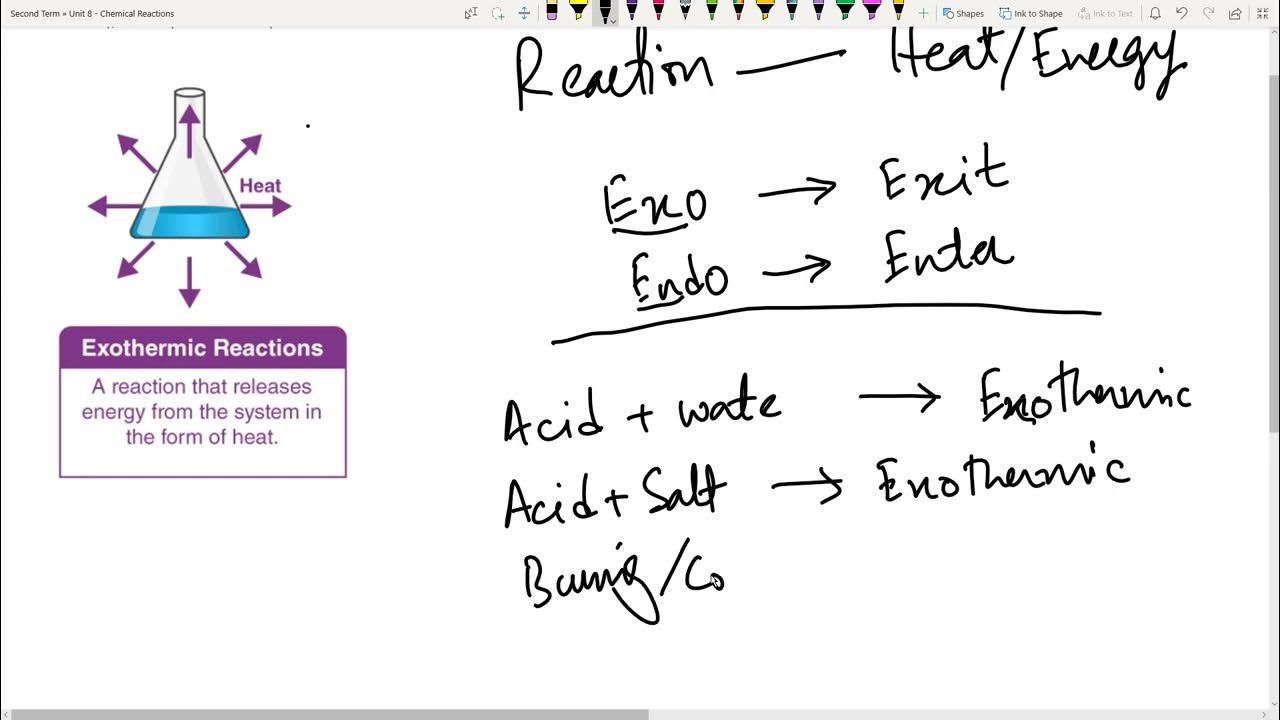 Second Term » Unit 8 - Chemical Reactions
Shapes
Ink to Shape
Ink to Text
Reaction — Heat/Energy
Heat
Exo → Exit
Endo → Enter
Exothermic Reactions
A reaction that releases
energy from the system in
the form of heat.
Acid + wate → Exothermic
Acid + Salt → Exothermic
Burning/Co